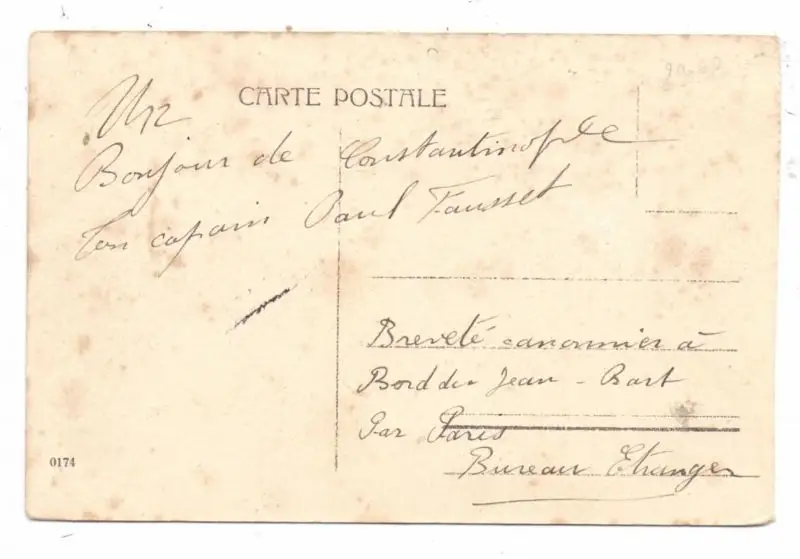 CARTE POSTALE
Un
Bonjour de Constantinople
Ton copain Paul Fausset
Breveté canonnier à
Bord du Jean - Bart
Par Paris
Bureau Etranger
0174